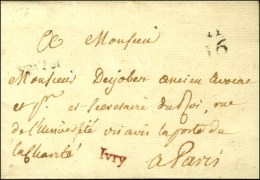 A Monsieur
Monsieur Dejobert ancien avocat
et secretaire du Roi, rue
de l'université vis avis la porte de
la Charité
Ivry
a Paris